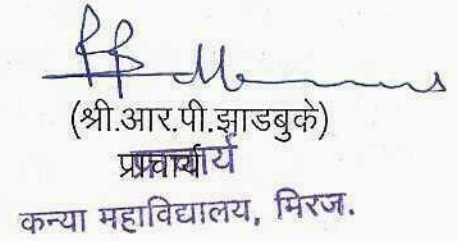 (श्री.आर.पी.झाडबुके)
प्राचार्य
प्राचार्य
कन्या महाविद्यालय, मिरज.